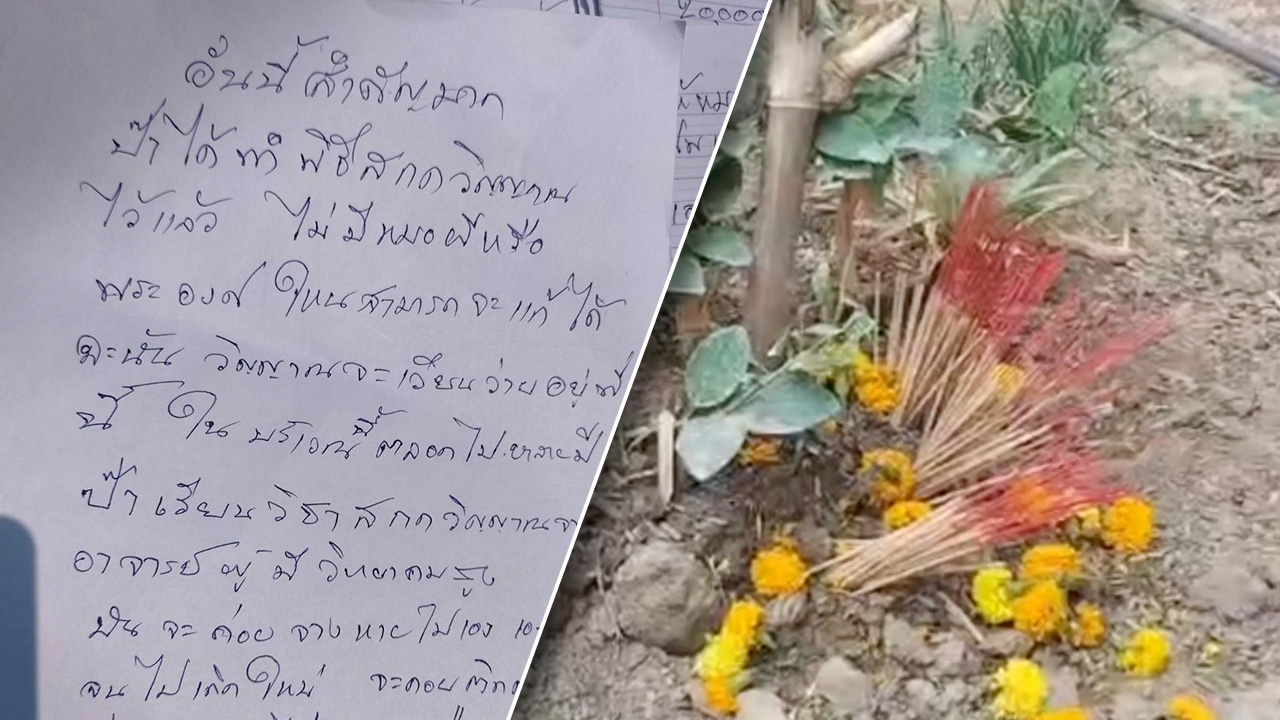 20,000
อันนี้สำคัญมาก
ป๊าได้ทำพิธีสกดวิญญาณ
ไว้แล้ว ไม่มีหมอผีหรือ
พระองค์ไหนสามารถจะแก้ได้
ฉะนั้น วิญญาณจะเวียนว่ายอยู่ที่
นี้ ในบริเวณนี้ตลอดไป
ป๊าเรียนวิชาสกดวิญญาณ
อาจารย์ผู้มีวิทยาคม
มันจะค่อยจางหายไปเอง
จนไปเกิดใหม่ จะคอย